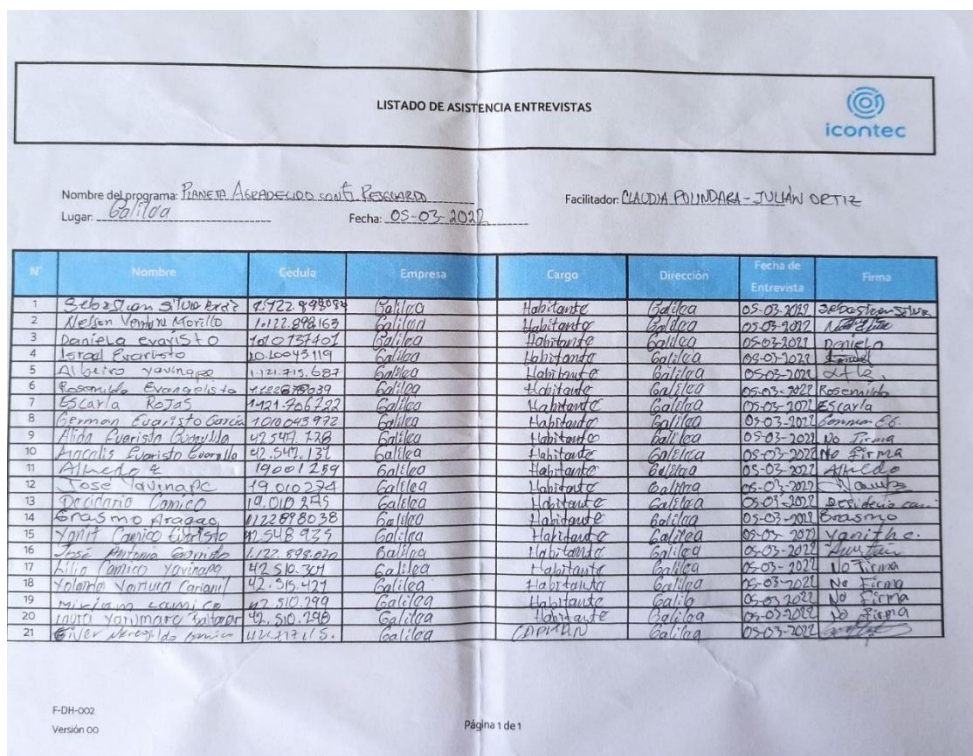 LISTADO DE ASISTENCIA ENTREVISTAS
icontec
Nombre del programa: PLANETA AGRADECIDO CONTI RESGUARDO Facilitador: CLAUDIA POLINDARA - JULIÁN ORTIZ
Lugar: Galilea Fecha: 05-03-2022
N° Nombre Cedula Empresa Cargo Dirección Fecha de Entrevista Firma
1 Sebastian Silva Galilea Habitante Galilea 05-03-2022 Sebastian Silva
2 Nelson Ventura Morillo 1.122.898.163 Galilea Habitante Galilea 05-03-2022
3 Daniela evaristo Galilea Habitante Galilea 05-03-2022 Daniela
4 Israel Evaristo 1010043119 Galilea Habitante Galilea 05-03-2022
5 Albeiro yavinape 1.121.715.687 Galilea Habitante Galilea 05-03-2022
6 Rosenilda Evangelista Galilea Habitante Galilea 05-03-2022 Rosenilda
7 Escarla Rojas 1.121.706722 Galilea Habitante Galilea 05-03-2022 Escarla
8 German Evaristo Garcia 1010043972 Galilea Habitante Galilea 05-03-2022 German EG.
9 Alida Evaristo 42.547.128 Galilea Habitante Galilea 05-03-2022 No Firma
10 Evaristo 42.547.131 Galilea Habitante Galilea 05-03-2022 No Firma
11 Alfredo E 19001259 Galilea Habitante Galilea 05-03-2022 Alfredo
12 José Yavinape 19.010274 Galilea Habitante Galilea 05-03-2022
13 Camico Galilea Habitante Galilea 05-03-2022 Desiderio
14 Erasmo Aragao 1122898038 Galilea Habitante Galilea 05-03-2022 Erasmo
15 Yanit Camico Evaristo 42.548939 Galilea Habitante Galilea 05-03-2022 Yanith c.
16 José Antonio Galilea Habitante Galilea 05-03-2022
17 Lilia Camico Yavinape 42510.301 Galilea Habitante Galilea 05-03-2022 No Firma
18 Yolanda Ventura 42.515.421 Galilea Habitante Galilea 05-03-2022 No Firma
19 Miriam Camico 42 510.299 Galilea Habitante Galile 05-03-2022 No Firma
20 Yarumare Baltazar 42.510.298 Galilea Habitante Galilea 05-03-2022 No Firma
21 Galilea CAPITAN Galilea 05-03-2022
F-DH-002
Versión 00
Página 1 de 1